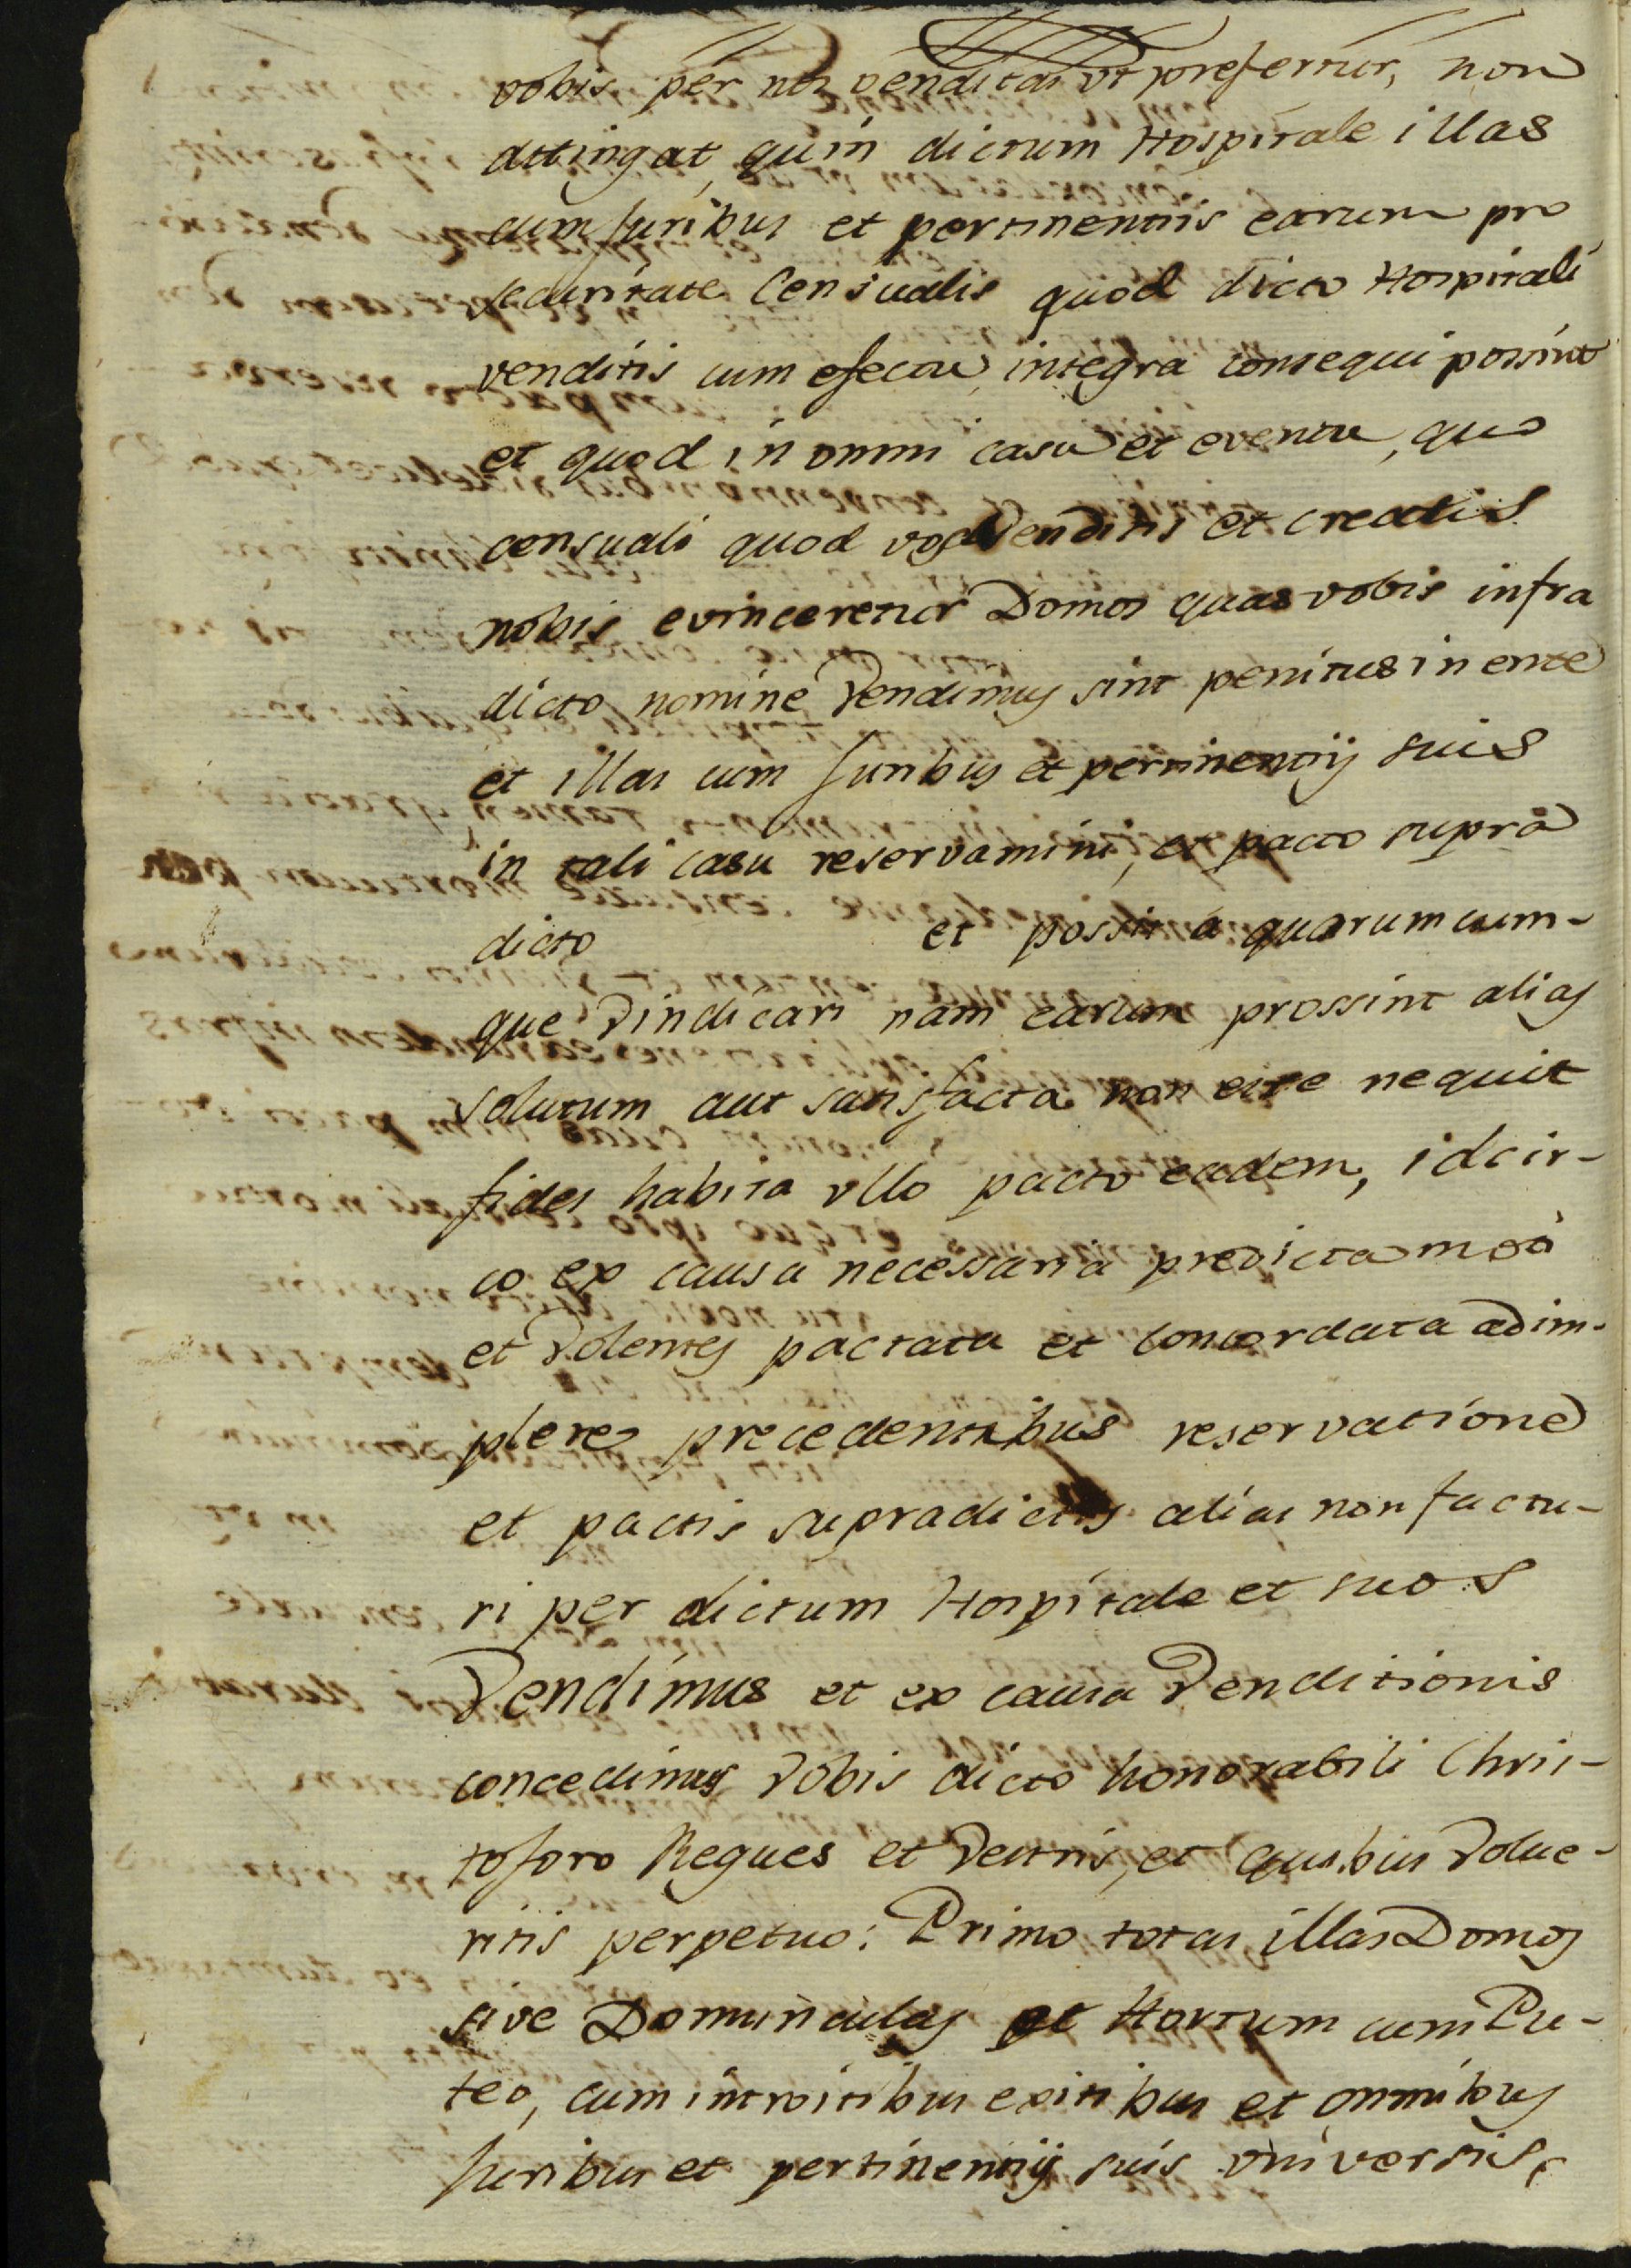 vobis per nos venditas vt prefertur, non
attingat, quin dictum Hospitale illas
cum Juribus et pertinentiis earum pro
securitate Censualis quod dicto Hospitali
venditis cum efectu, integra consequi possint
et quod in omni casu et eventu, quo
censuali quod vos Venditis et creatis
nobis evinceretur Domos quas vobis infra
dicto nomine Vendimus sint penitus in ente
et illas cum Juribus et pertinentijs suis
in tali casu reservamini, et pacto supra
dicto et possit a quarumcum-
que Vindicari nam earum prossint alias
solutum aut satisfacta non esse nequit
fides habita vllo pacto eadem, idcir-
co ex causa necessaria predicta moti
et Volentes pactata et Concordata adim-
plere precedentibus reservatione
et pactis supradictis alias non factu-
ri per dictum Hospitale et suos
Vendimus et ex causa Venditionis
concedimus Vobis dicto honorabili Chris-
toforo Regues et Vestris, et quibus Volue-
ritis perpetuo: Primo totas illas Domos
sive Domunculas et Hortum cum Pu-
teo, cum introitibus exitibus et omnibus
Juribus et pertinentijs suis vniversis,